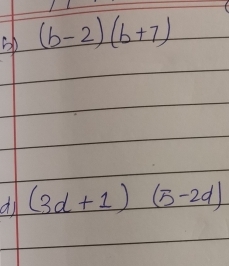 b) (b-2)(b+7)
d) (3d+1) (5-2d)